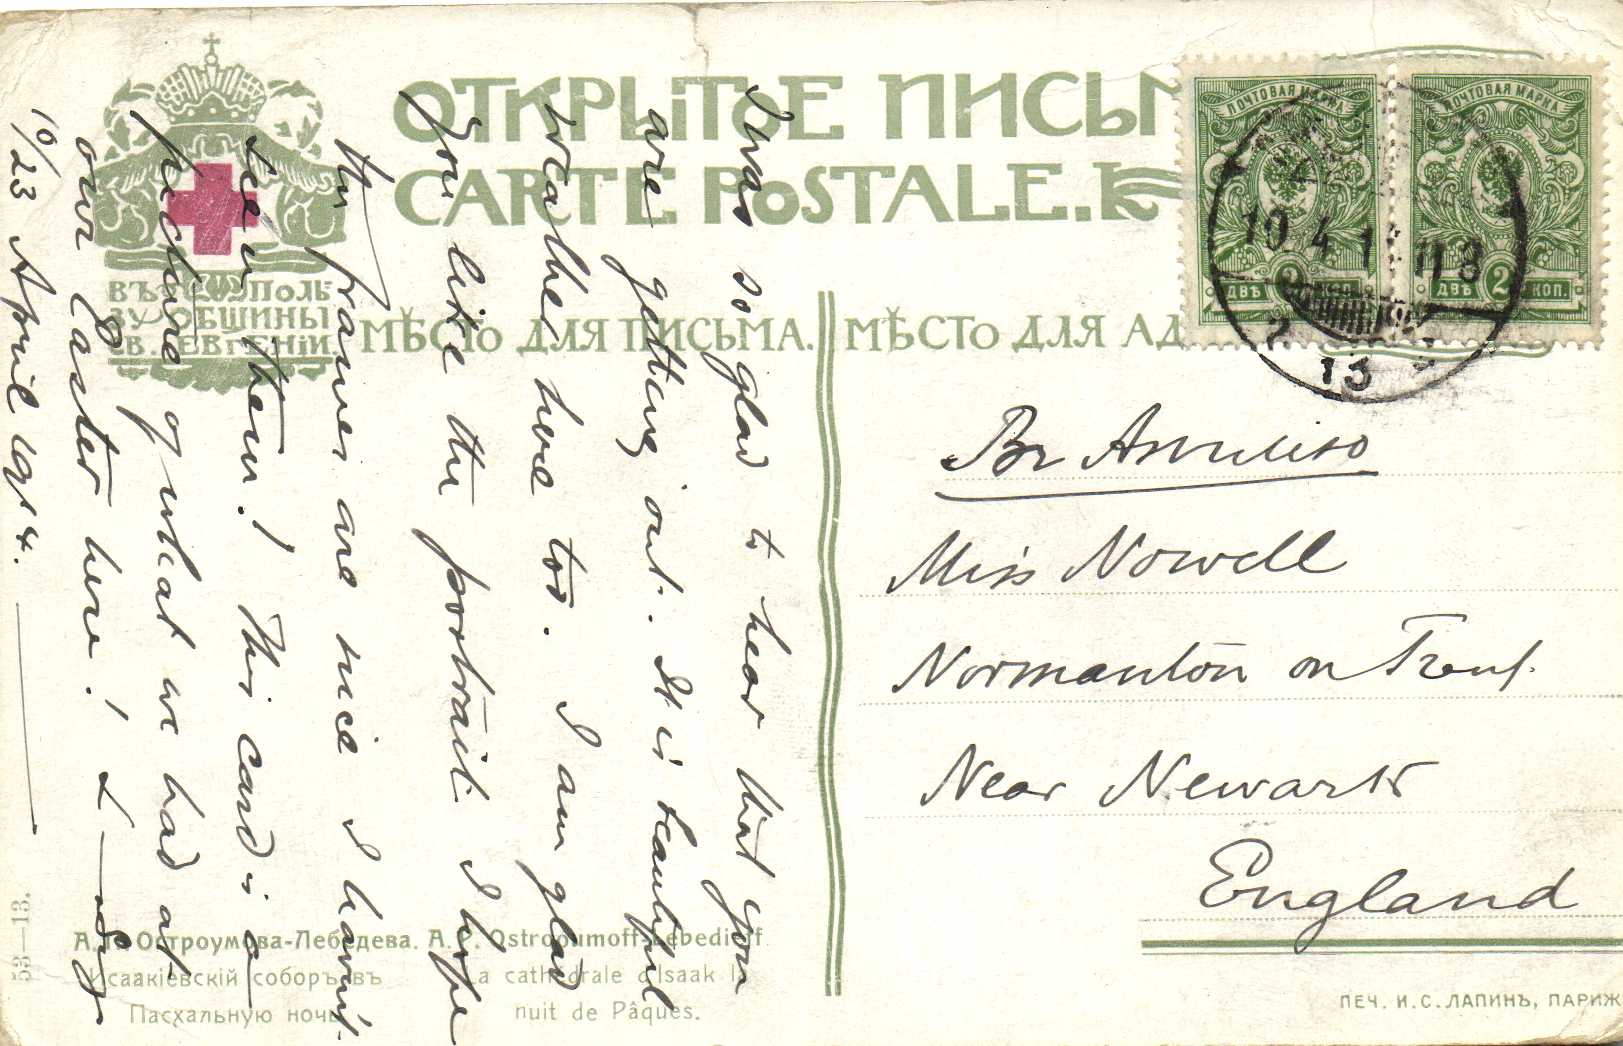 ОТКРЫТОЕ ПИСЬМ
CARTE POSTALE.
ВЪ ПОЛЬ-
ЗУ ОБЩИНЫ
СВ. ЕВГЕНІИ.
МѢСТО ДЛЯ ПИСЬМА.
МѢСТО ДЛЯ АД
ПОЧТОВАЯ МАРКА
ДВѢ 2 КОП.
ПОЧТОВАЯ МАРКА
ДВѢ 2 КОП.
10 4 1
13
I was so glad to hear that you
are getting out. It is beautiful
weather here too. I am glad
you like the portrait. I hope
the frames are nice I havnt
seen them! This card is a
picture of what we had at
our Easter here!
10/23 April 1914.
Въ Англiю
Miss Nowell
Normanton on Trent.
Near Newark
England
53—13.
А. П. Остроумова-Лебедева. A. P. Ostrooumoff-Lebedieff
Исаакіевскій соборъ въ
Пасхальную ночь
La cathédrale d'Isaak la
nuit de Pâques.
ПЕЧ. И. С. ЛАПИНЪ, ПАРИЖ